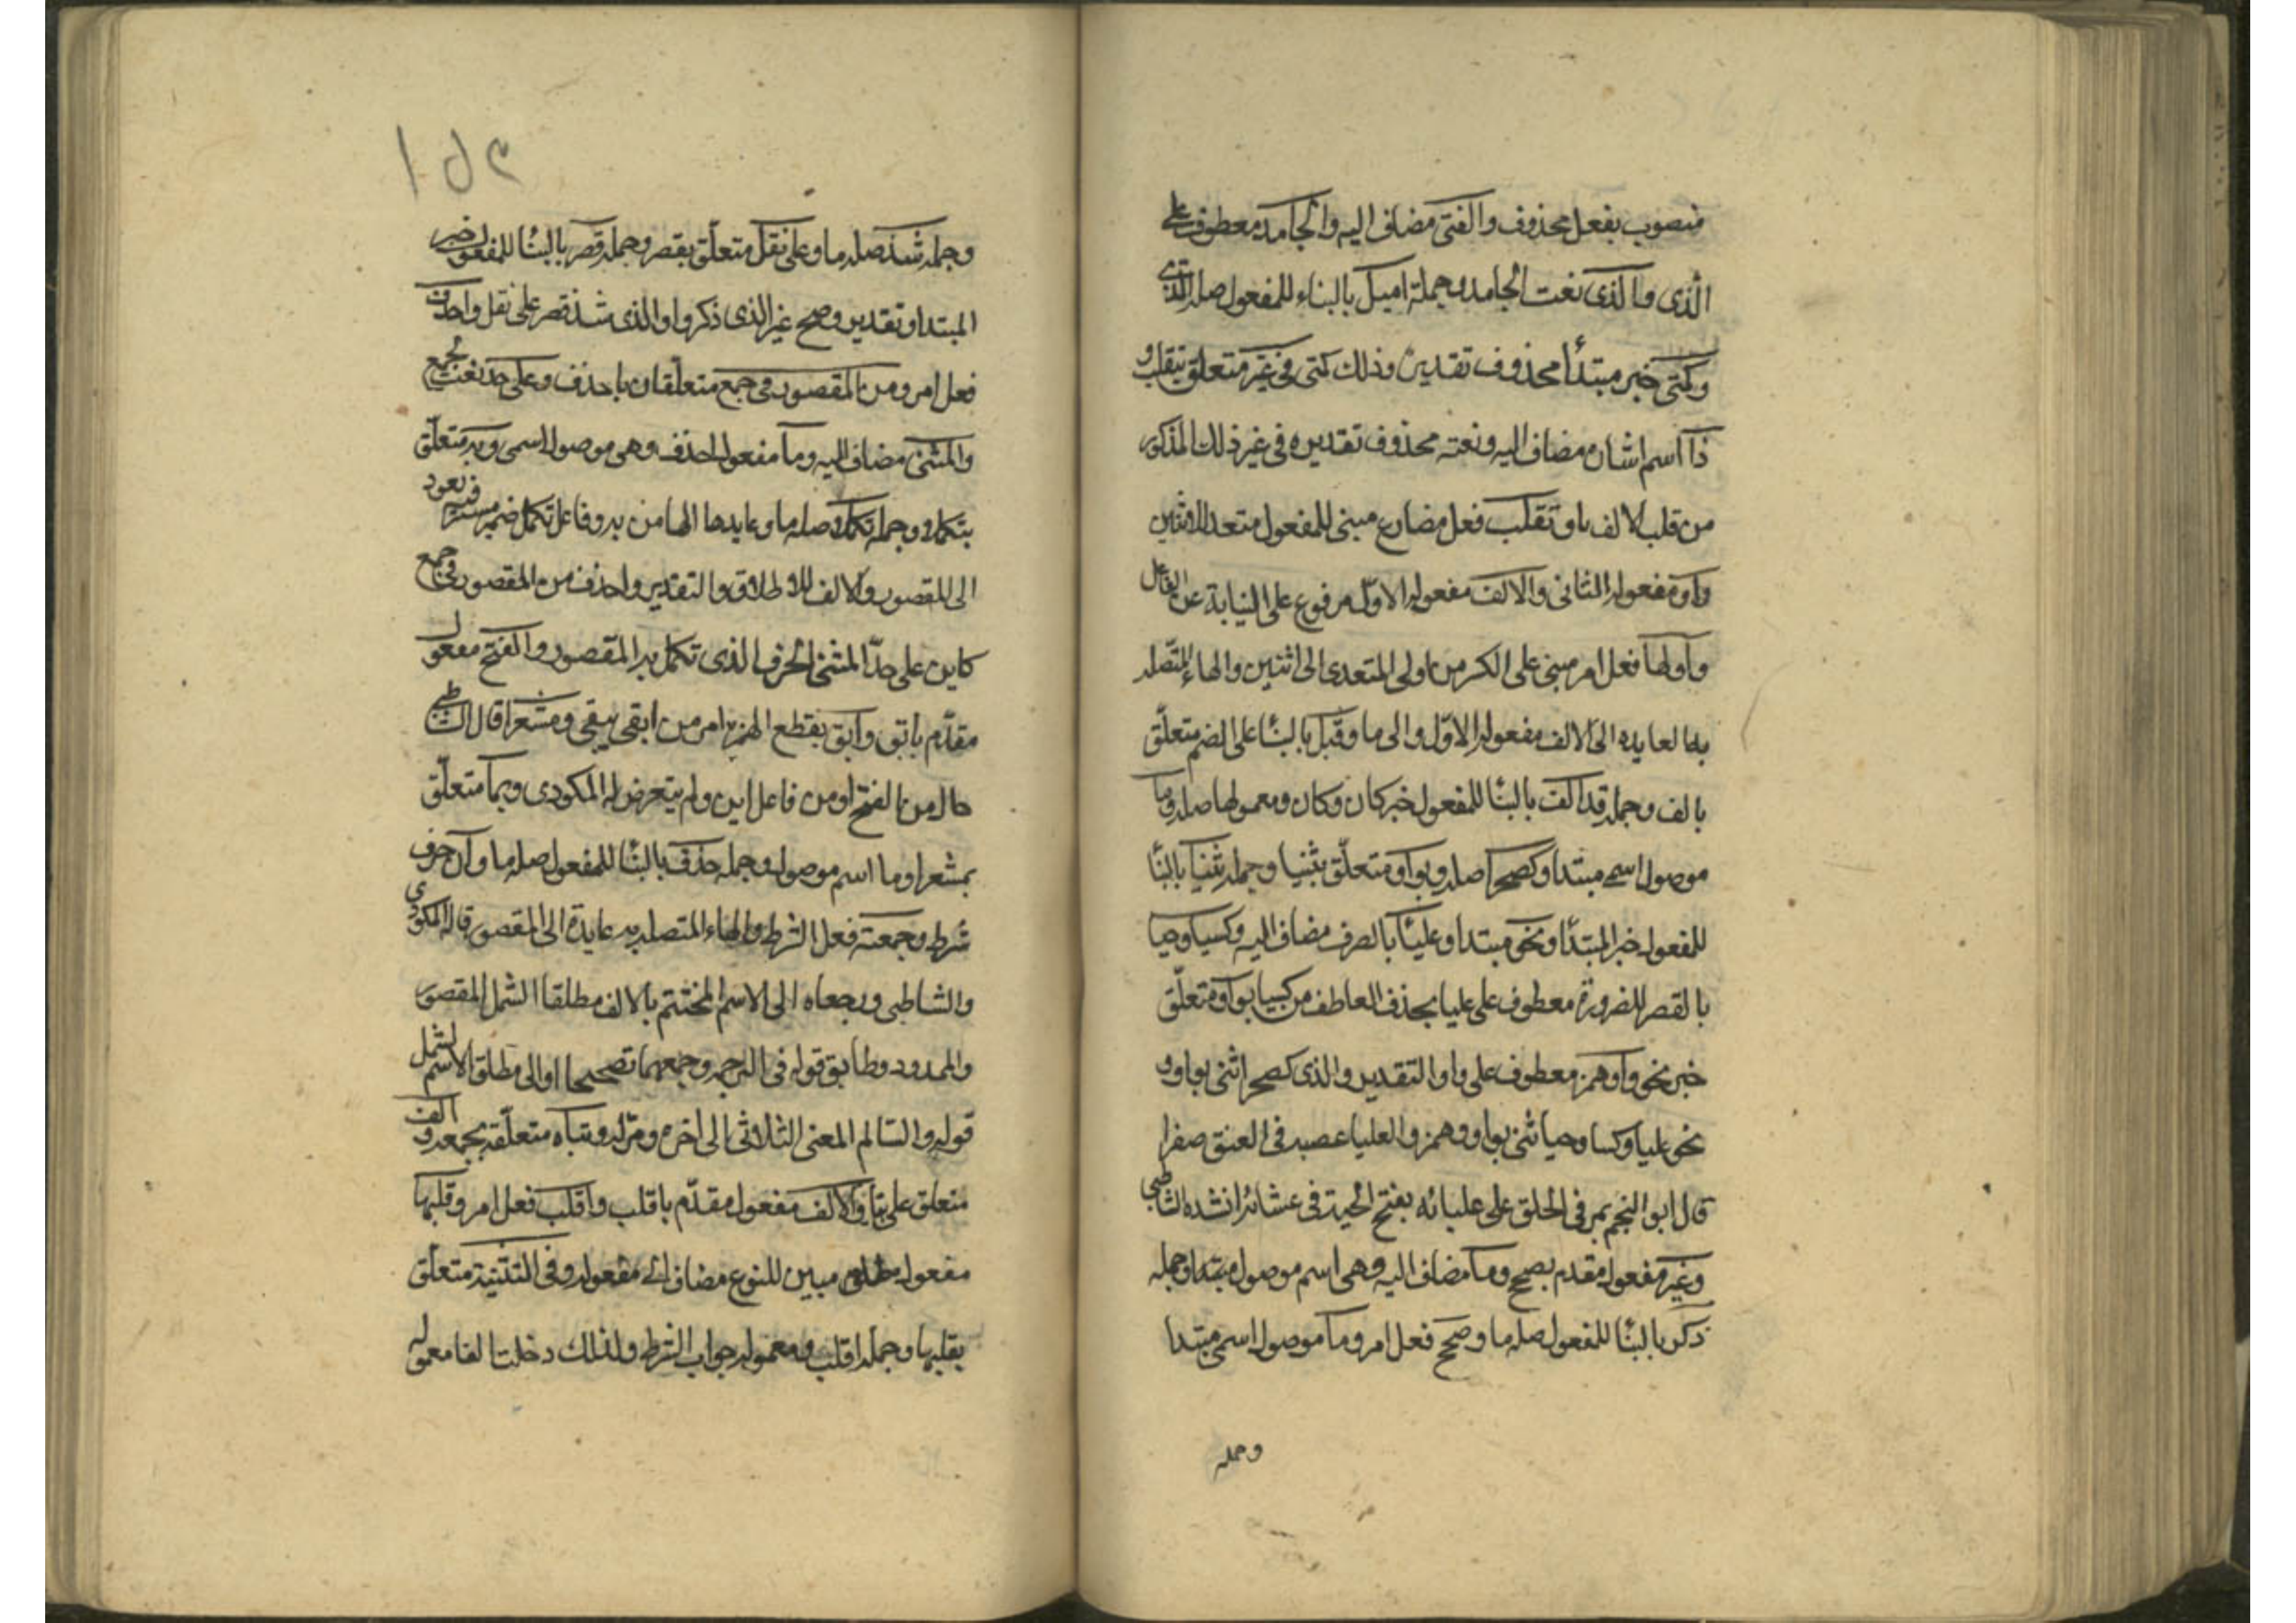 منصوب بفعل محذوف والفتى مضاف اليه والجامد معطوف على
الذى والذى نعت الجامد وجملة اميل بالبناء للمفعول صلة الذى
وكمتى خبر مبتدأ محذوف تقديره وذلك كمتى فى غير متعلق بتقلب و
ذا اسم اشاره مضاف اليه ونعته محذوف تقديره فى غير ذلك المذكور
من قلب الالف يا وتقلب فعل مضارع مبنى للمفعول متعد لاثنين
واو مفعوله الثانى والالف مفعوله الاول مرفوع على النيابة عن الفاعل
واولها فعل امر مبنى على الكسر من اولى المتعدى الى اثنين والهاء المتصله
بها العايده الى الالف مفعوله الاول والى ما وقبل بالبنا على الضم متعلق
بالف وجملة قد الف بالبنا للمفعول خبر كان وكان ومعمولها صله وما
موصول اسمى مبتدا وكصحرا صله وبواو متعلق بثنيا وجمله ثنيا بالبنا
للمفعول خبر المبتدأ ونحو مبتدا وعلبا بالصرف مضاف اليه وكسيا وحيا
بالقصر للضرورة معطوف على علبا بحذف العاطف من كسيا بواو متعلق
خبر نحو واو همز معطوف على واو التقدير والذى كصحرا ثنى بواو و
نحو علبا وكسا وحيا ثنى بواو وهمز والعلبا عصبه فى العنق صفرا
قال ابو النجم يمر فى الحلق على علبائه بفتح الحية فى عشائر انشده الشاطبى
وغير مفعول مقدم بصحح وما مضاف اليه وهى اسم موصول مبتدا وجمله
ذكر بالبنا للمفعول صله ما وصحح فعل امر وما موصول اسمى مبتدا
وجمله
١٥٢
وجمله شذ صله ما وعلى نقل متعلق بقصر وجمله قصر بالبنا للمفعول خبر
المبتدا وتقديره وصحح غير الذى ذكروا والذى شذ قصر على نقل واحذف
فعل امر ومن المقصور وفى جمع متعلقان باحذف وعلى حد نعت لجمع
والمثنى مضاف اليه وما مفعول احذف وهى موصول اسمى وبه متعلق
بتكملا وجمله تكملا صله ما وعايدها الها من به وفاعل تكمل ضمير مستتر فيه يعود
الى المقصور والالف للاطلاق والتقدير واحذف من المقصور فى جمع
كاين على حد المثنى الحرف الذى تكمل به المقصور والفتح مفعول
مقدم بابق وابق بقطع الهمزه امر من ابقى يبقى ومشعرا قال الشاطبى
حال من الفتح او من فاعل ابق ولم يتعرض له المكودى وبما متعلق
بمشعرا وما اسم موصول وجمله حذف بالبنا للمفعول صله ما وان حرف
شرط وجمعته فعل الشرط والهاء المتصله به عايدة الى المقصور قاله المكودى
والشاطبى ورجعاه الى الاسم المختتم بالالف مطلقا الشمل المقصور
والممدود وطابق قوله فى الترجمه وجمعهما تصحيحا او الى مطلق الاسم لشمل
قوله والسالم المعنى الثلاثى الى اخره ومثله وبتاه متعلقه بجمعه والف
متعلق على بتا والالف مفعول مقدم باقلب واقلب فعل امر وقلبها
مفعول مطلق مبين للنوع مضاف الى مفعوله وفى التثنية متعلق
بقلبها وجمله اقلب ومعموله جواب الشرط ولذلك دخلت الفا معموله